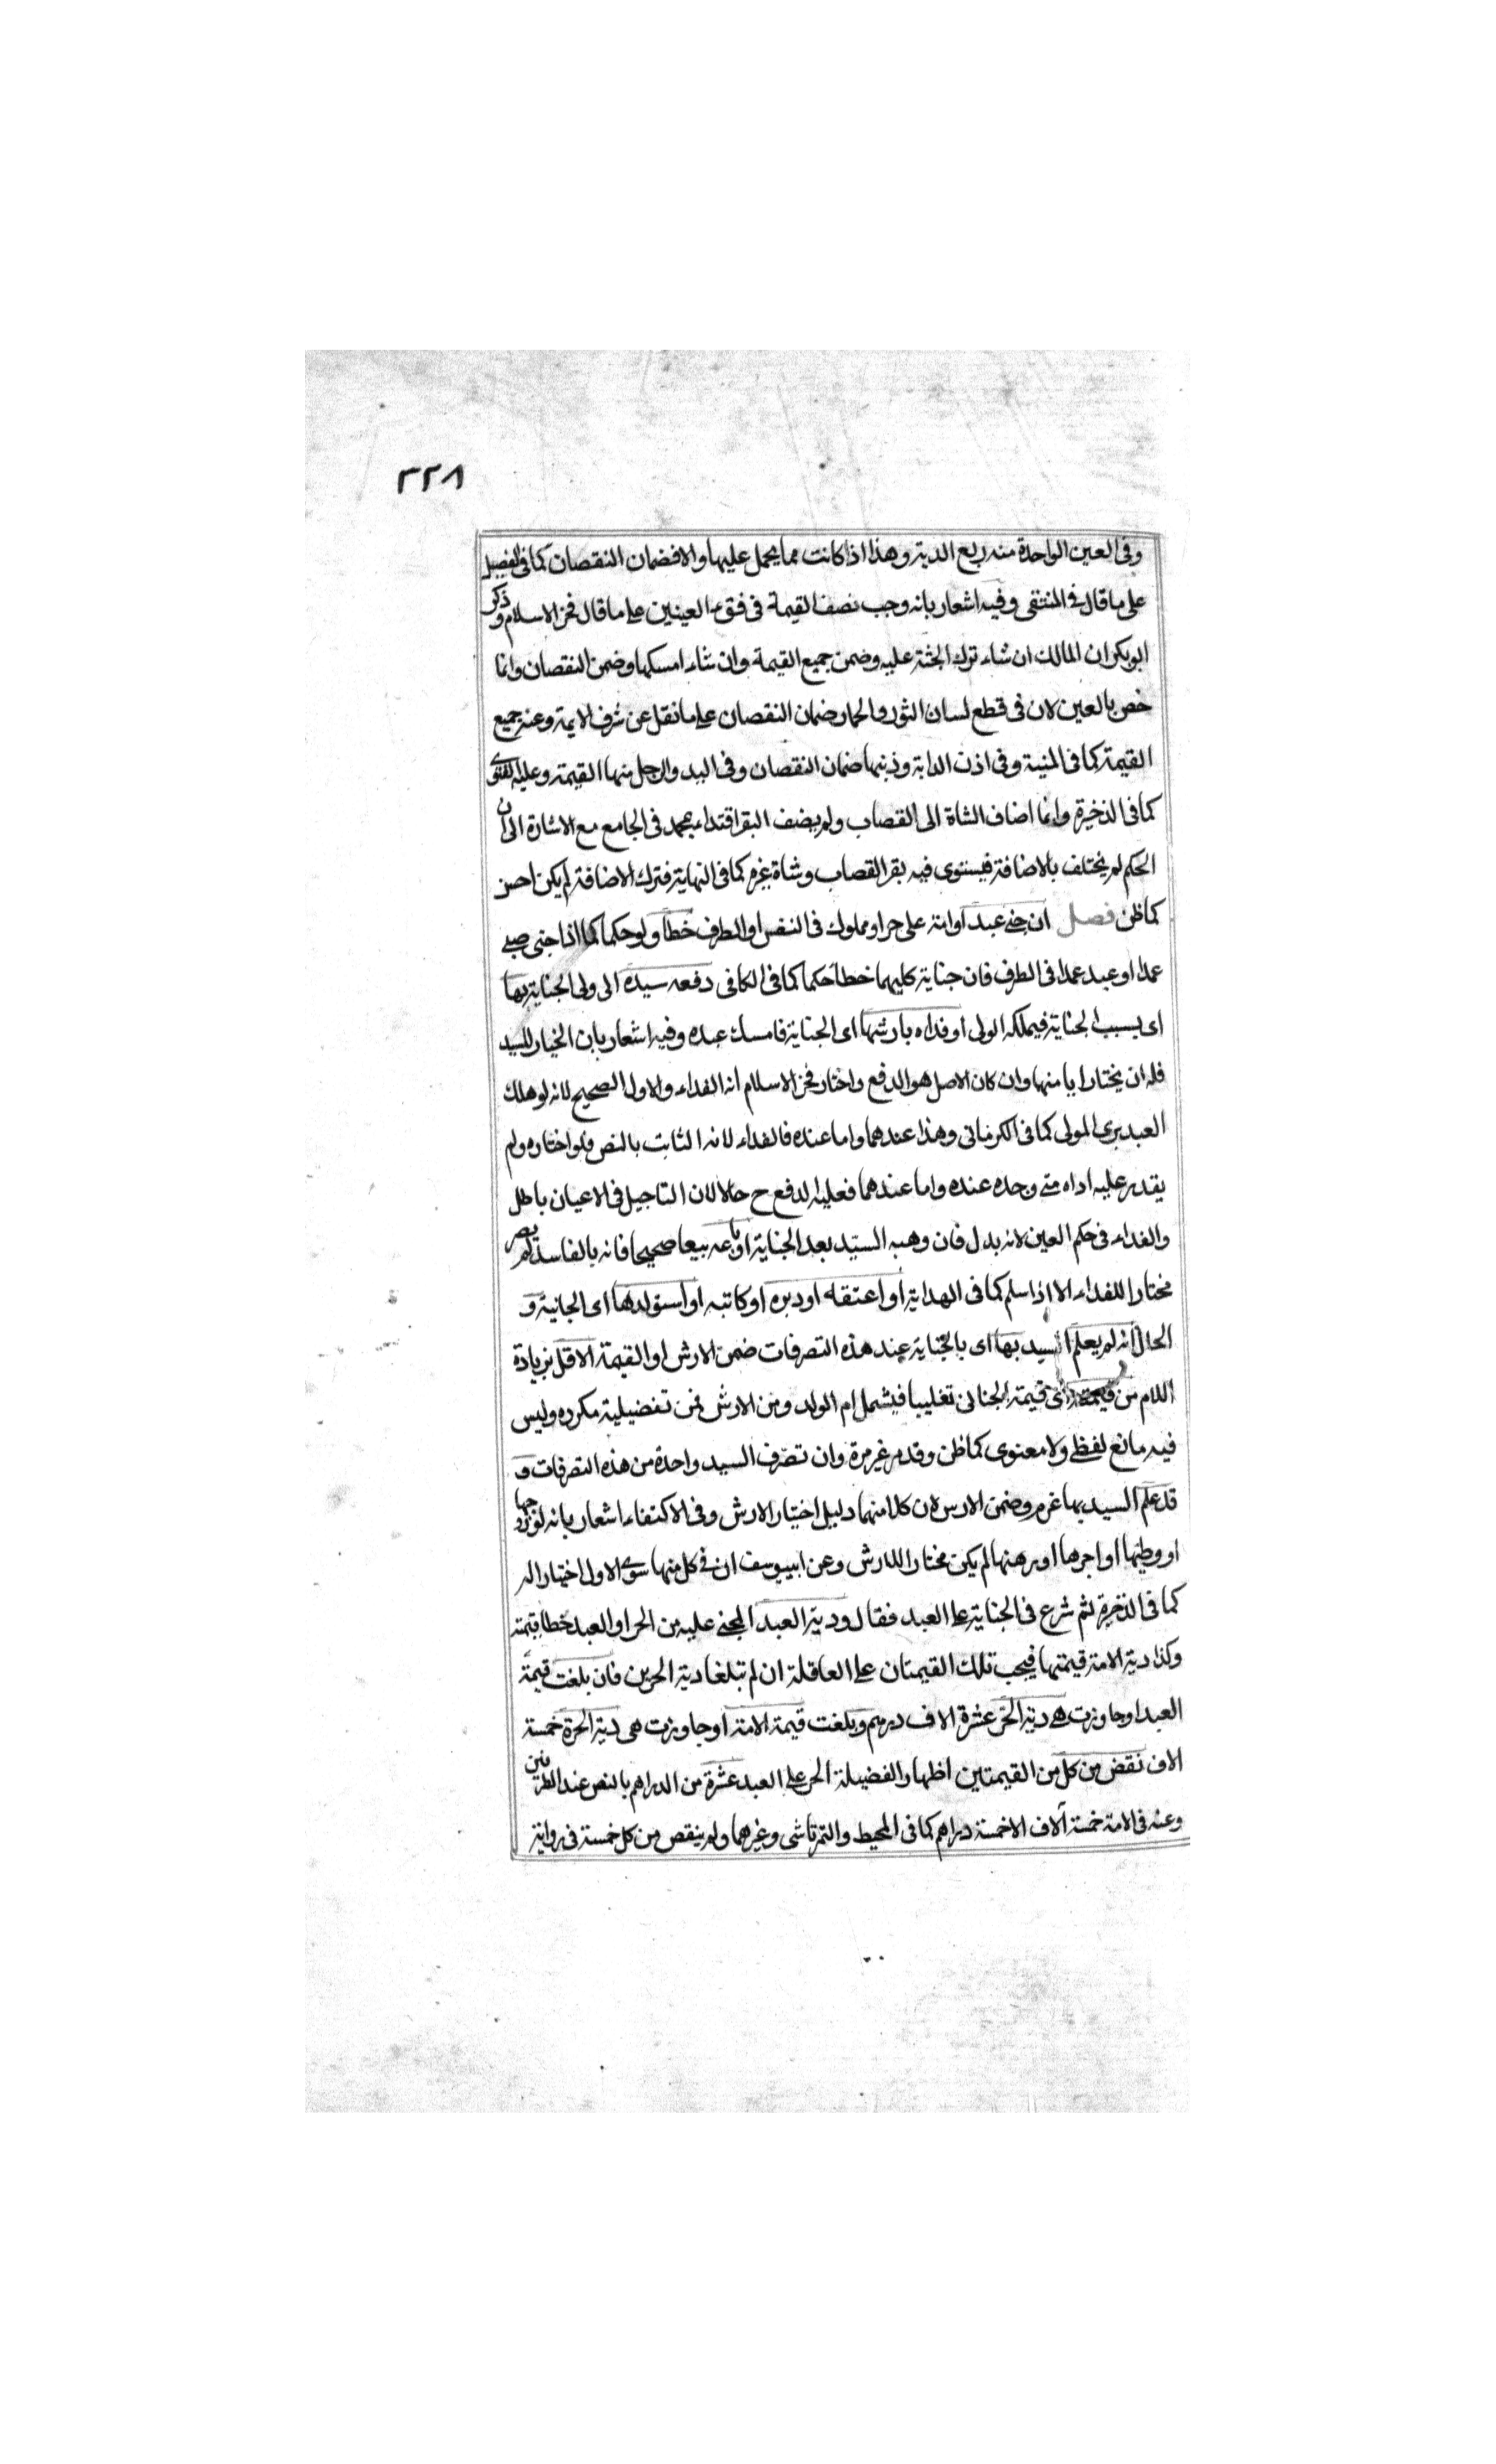 ٣٢٨
وفى العين الواحدة منه ربع الدية وهذا اذا كانت مما يحمل عليها والا فضمان النقصان كما فى الفصيل
على ما قال فى المنتقى وفيه اشعار بانه وجب نصف القيمة فى فقء العينين على ما قال فخر الاسلام وذكر
ابو بكر ان المالك ان شاء ترك الجثة عليه وضمن جميع القيمة وان شاء امسكها وضمن النقصان وانما
خص بالعين لان فى قطع لسان الثور والحمار ضمان النقصان على ما نقل عن شرف الايمة وعنه جميع
القيمة كما فى المنية وفى اذن الدابة وذنبها ضمان النقصان وفى اليد والرجل منها القيمة وعليه الفتوى
كما فى الذخيرة وانما اضاف الشاة الى القصاب ولم يضف البقر اقتداء بمحمد فى الجامع مع الاشارة الى ان
الحكم لم يختلف بالاضافة فيستوى فيه بقر القصاب وشاة غيره كما فى النهاية فترك الاضافة لم يكن احسن
كما ظن فصل ان جنى عبد او امة على حر او مملوك فى النفس او الطرف خطأ ولو حكما كما اذا جنى صبى
عمدا او عبد عمدا فى الطرف فان جناية كليهما خطأ حكما كما فى الكافى دفعه سيده الى ولى الجناية بها
اى بسبب الجناية فيملكه الولى او فداه بارشها اى الجناية فامسك عبده وفيه اشعار بان الخيار للسيد
فله ان يختار ايا منهما وان كان الاصل هو الدفع واختار فخر الاسلام انه الفداء والاول الصحيح لانه لو هلك
العبد برى المولى كما فى الكرمانى وهذا عندهما واما عنده فالفداء لانه الثابت بالنص فلو اختاره ولم
يقدر عليه اداه متى وجده عنده واما عندهما فعليه الدفع ح حالا لان التاجيل فى الاعيان باطل
والفداء فى حكم العين لانه بدل فان وهبه السيد بعد الجناية او باعه بيعا صحيحا فانه بالفاسد لم يصر
مختارا للفداء الا اذا سلم كما فى الهداية او اعتقه او دبره او كاتبه او استولدها اى الجانية و
الحال انه لم يعلم السيد بها اى بالجناية عند هذه التصرفات ضمن الارش او القيمة الاقل بزيادة
اللام من قيمته اى قيمة الجانى تغليبا فيشمل ام الولد ومن الارش فمن تفضيلية مكرره وليس
فيه مانع لفظى ولا معنوى كما ظن وقد مر غير مرة وان تصرف السيد واحدة من هذه التصرفات و
قد علم السيد بها غرم وضمن الارش لان كلا منهما دليل اختيار الارش وفى الاكتفاء اشعار بانه لو زوجها
او وطئها او اجرها او رهنها لم يكن مختارا للارش وعن ابى يوسف ان فى كل منها سوى الاول اختيارا له
كما فى الذخيرة ثم شرع فى الجناية على العبد فقال ودية العبد المجنى عليه من الحر او العبد خطأ قيمته
وكذا دية الامة قيمتها فيجب تلك القيمتان على العاقلة ان لم تبلغا دية الحرين فان بلغت قيمة
العبد او جاوزت هى دية الحر عشرة الاف درهم وبلغت قيمة الامة او جاوزت هى دية الحرة خمسة
الاف نقض من كل من القيمتين اظهارا لفضيلة الحر على العبد عشرة من الدراهم بالنص عند الطرفين
وعنه فى الامة خمسة آلاف الا خمسة دراهم كما فى المحيط والتمرتاشى وغيرهما ولم ينقص من كل خمسة فى رواية